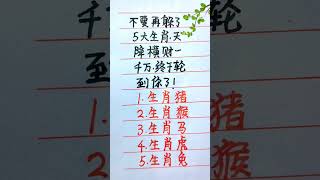 不要再躲了
5大生肖.天
降横财一
千万.终于轮
到你了!
1.生肖猪
2.生肖猴
3.生肖马
4.生肖虎
5.生肖兔